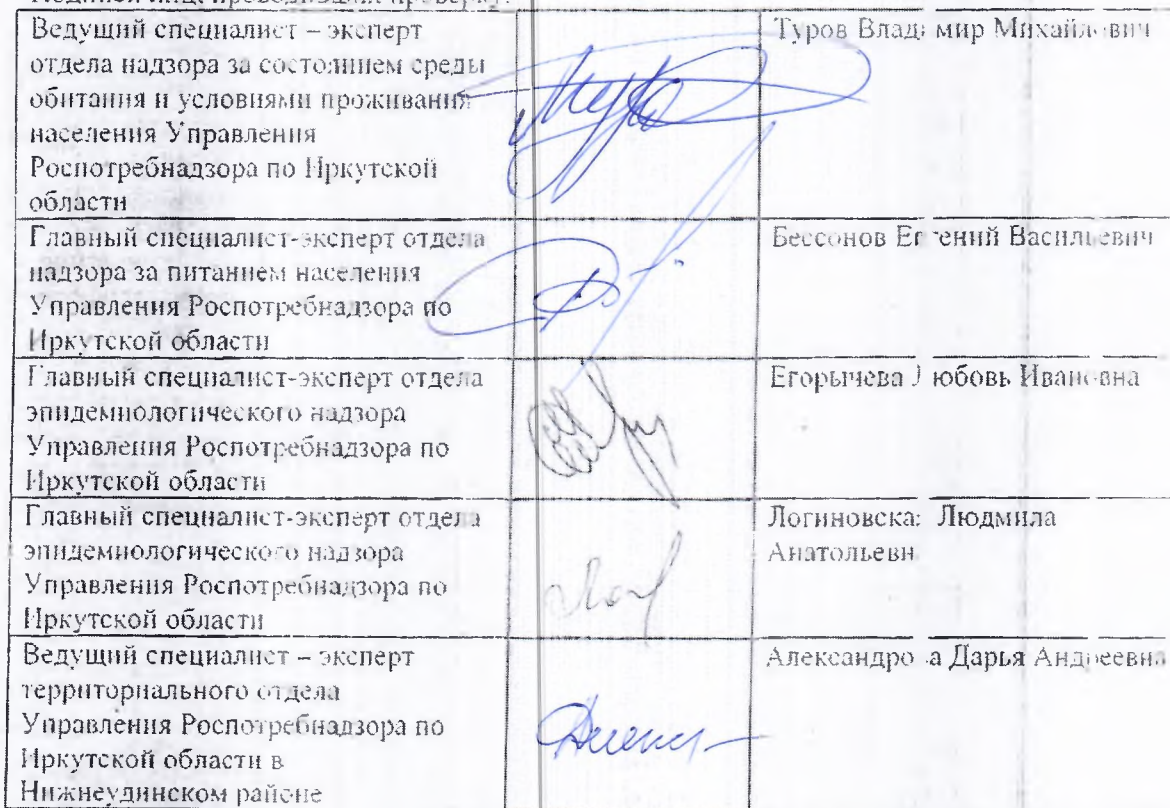 Ведущий специалист – эксперт
отдела надзора за состоянием среды
обитания и условиями проживания
населения Управления
Роспотребнадзора по Иркутской
области
Туров Владимир Михайлович
Главный специалист-эксперт отдела
надзора за питанием населения
Управления Роспотребнадзора по
Иркутской области
Бессонов Евгений Васильевич
Главный специалист-эксперт отдела
эпидемиологического надзора
Управления Роспотребнадзора по
Иркутской области
Егорычева Любовь Ивановна
Главный специалист-эксперт отдела
эпидемиологического надзора
Управления Роспотребнадзора по
Иркутской области
Логиновская Людмила
Анатольевн
Ведущий специалист – эксперт
территориального отдела
Управления Роспотребнадзора по
Иркутской области в
Нижнеудинском районе
Александрова Дарья Андреевна